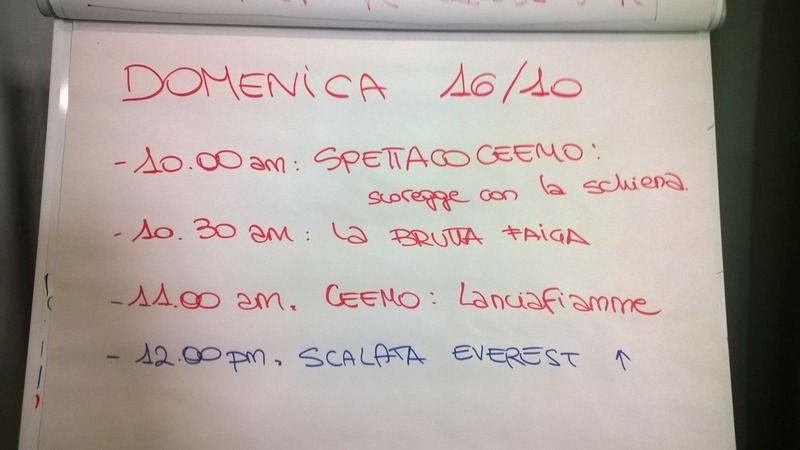 DOMENICA 16/10
- 10.00 am: SPETTACO CEEMO:
scoregge con la schiena.
- 10.30 am: la BRUTTA FAIGA
- 11.00 am. CEEMO: Lanciafiamme
- 12.00 pm. SCALATA EVEREST ↑